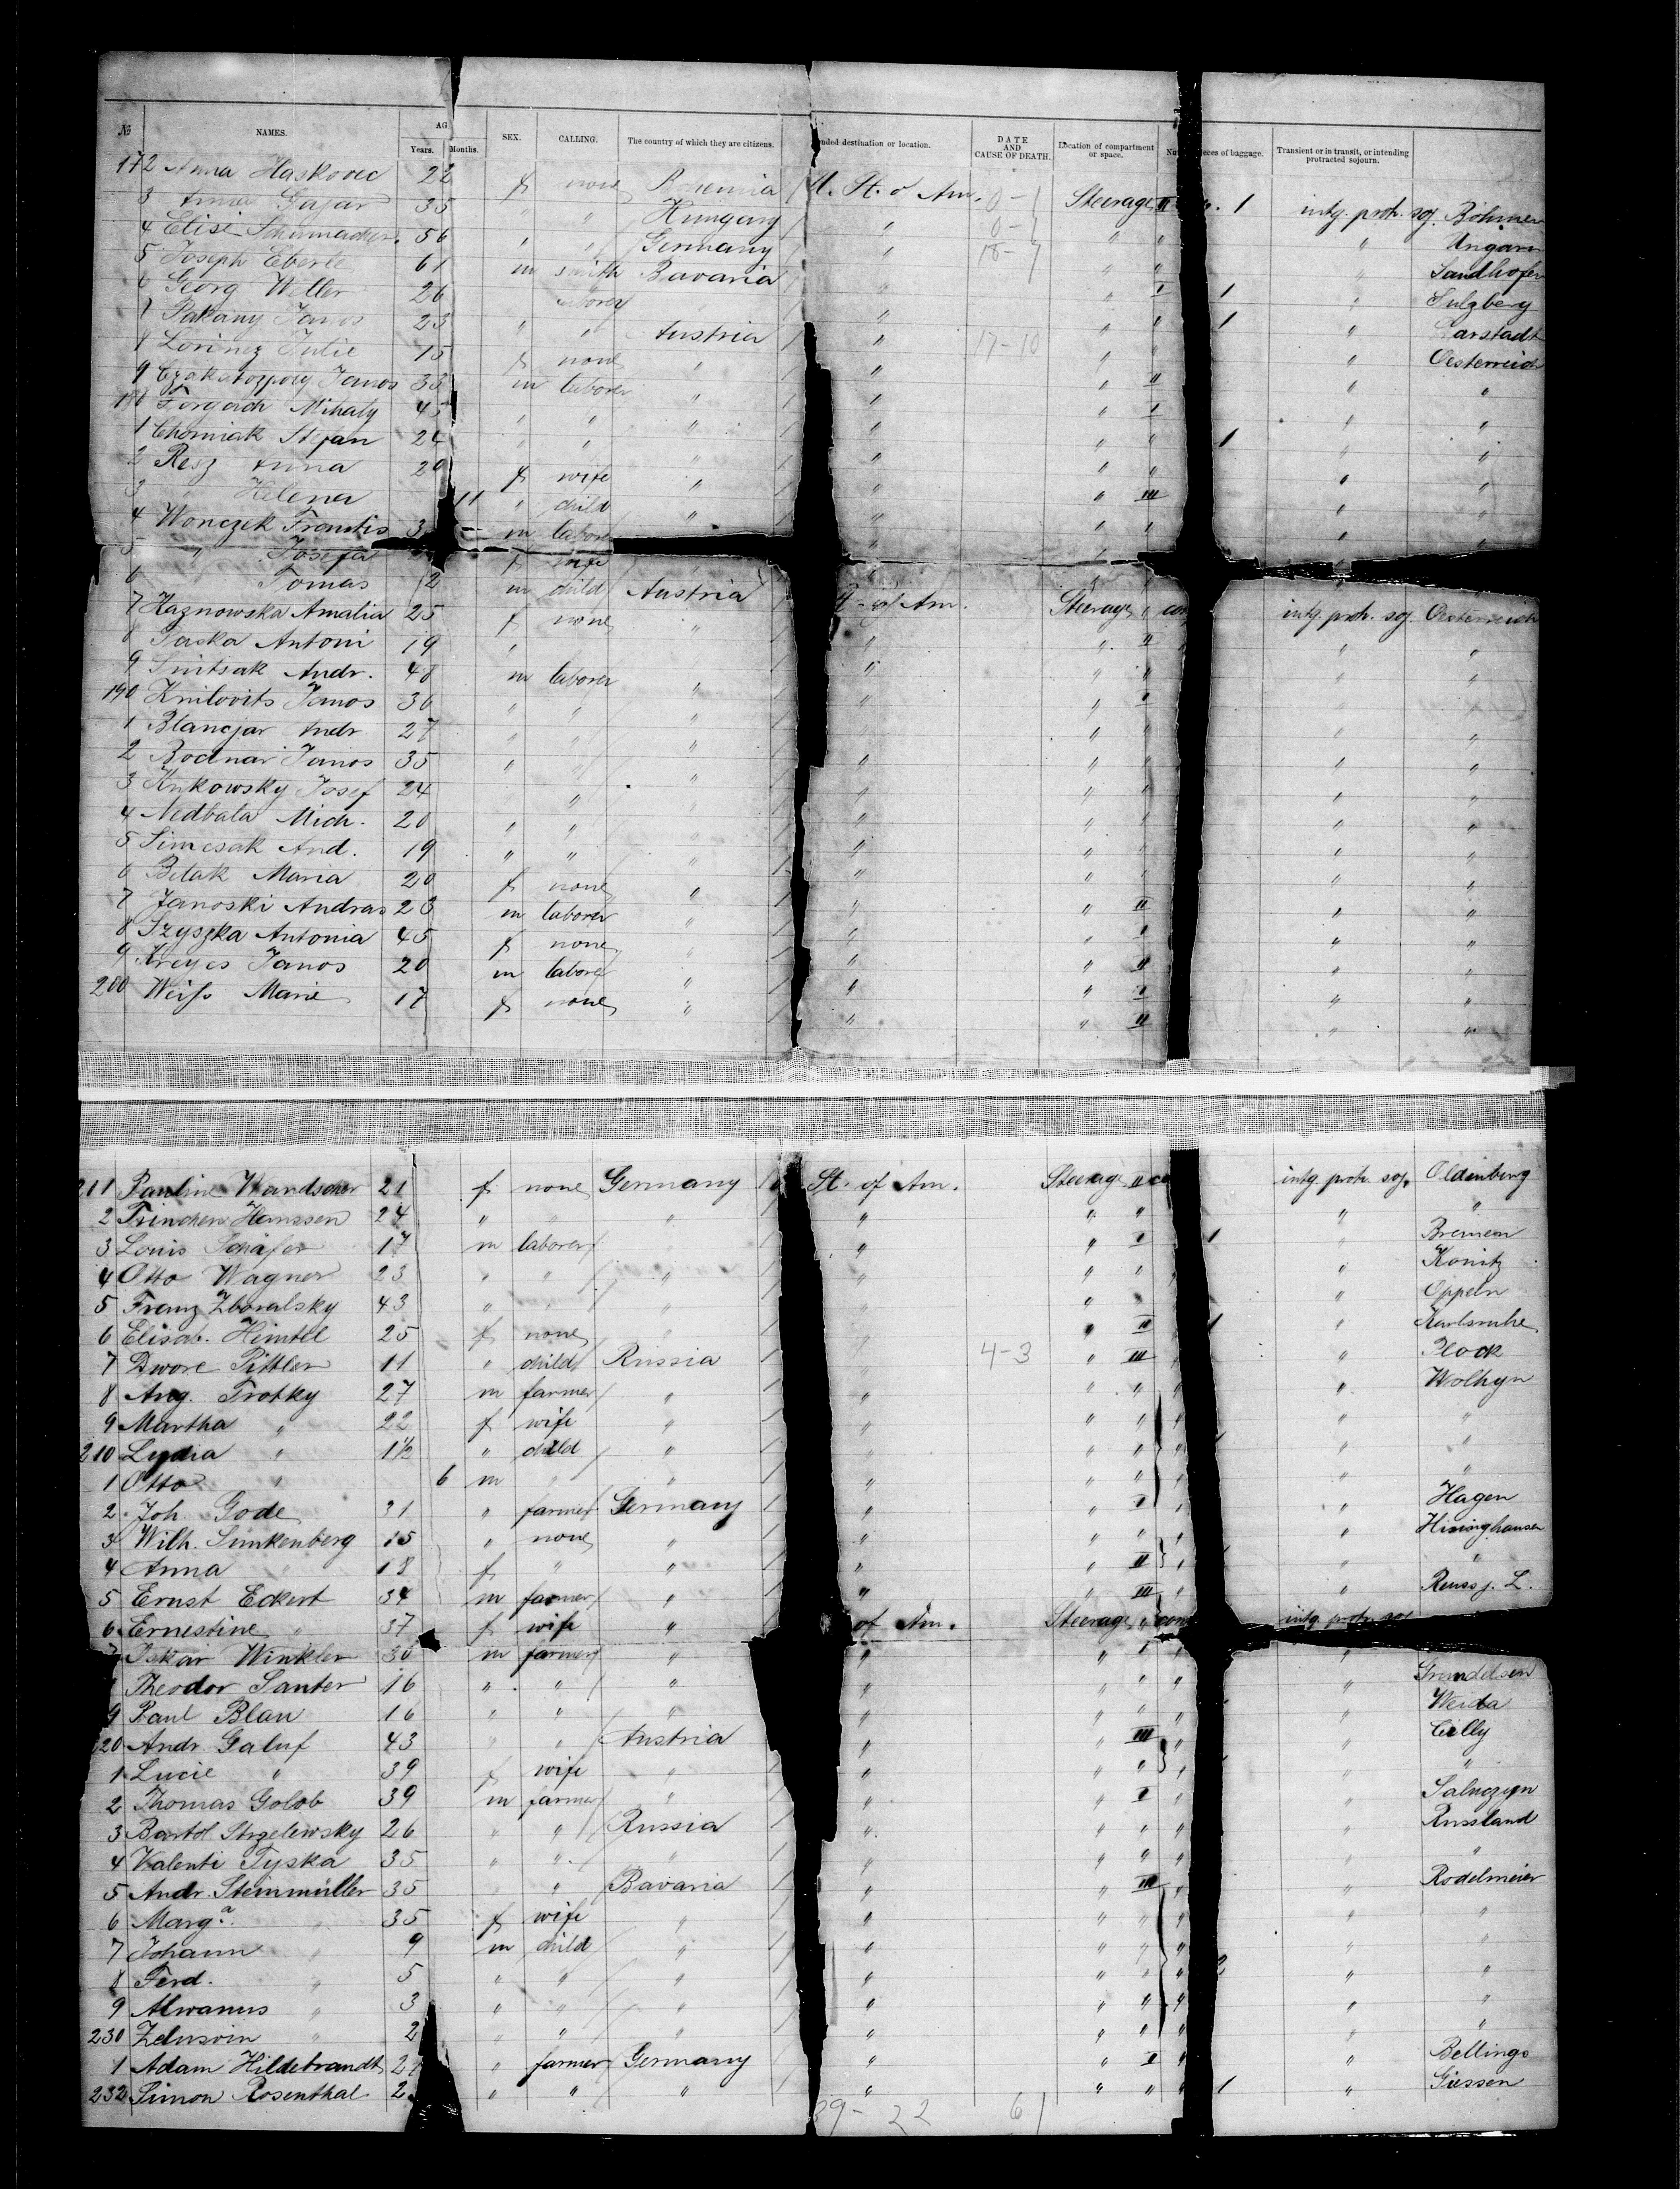 № NAMES. AG Years. Months. SEX. CALLING. The country of which they are citizens. nded destination or location. DATE AND CAUSE OF DEATH. Location of compartment or space. Nu eces of baggage. Transient or in transit, or intending protracted sojourn.
172 Anna Haskovec 22 f none Bohemia U. St. of Am. 0- Steerage II 1 intg. protr. soj. Böhmen
3 Anna Gajar 35 " " Hungary " 0- " " " Ungarn
4 Elise Schumacher 56 " " Germany " 18- " " " Sandhofen
5 Joseph Eberle 61 m smith Bavaria " " I 1 " Sulzberg
6 Georg Weller 26 laborer " " " 1 " Carstadt
7 Pakany Janos 23 " " Austria " 17-10 " " " Oesterreich
8 Lorincz Julie 15 f none " " " II " "
9 Czakatozpoly Janos 33 m laborer " " " I " "
180 Forgach Mihaly 45 " " " " " " 1 " "
1 Chomiak Stefan 24 " " " " " " " "
2 Resz Anna 20 f wife " " " III " "
3 " Helena 11 " child " " " " " "
4 Wonczek Frantis 3 m labor " " "
5 " Josefa f wife " "
6 Tomas 2 m child Austria St. of Am. Steerage " com intg. protr. soj. Oesterreich
7 Haznowska Amalia 25 f none " " " II " "
8 Paska Antoni 19 " " " " " "
9 Smitsak Andr. 48 m laborer " " " I " "
190 Knilovits Janos 36 " " " " " " " "
1 Blancjar Andr 27 " " " " " " " "
2 Bodnar Janos 35 " " " " " " " "
3 Ankowsky Josef 24 " " " " " " "
4 Nedbala Mich. 20 " " " " " " " "
5 Simcsak And. 19 " " " " " " " "
6 Betak Maria 20 f none " " " II " "
7 Janoski Andras 23 m laborer " " " I " "
8 Szyszka Antonia 45 f none " " " II " "
9 Kreyes Janos 20 m laborer " " " I " "
200 Weiss Marie 17 f none " " " II " "
211 Pauline Wandscher 21 f none Germany St. of Am. Steerage II co intg. protr. soj. Oldenburg
2 Trinchen Hanssen 24 " " " " " " "
3 Louis Schäfer 17 m laborer " " I 1 " Bremen
4 Otto Wagner 23 " " " " " " " Konitz
5 Franz Zboralsky 43 " " " " " " " Oppeln
6 Elisab. Heimtel 25 f none " " " II 1 " Karlsruhe
7 Dwore Pittler 11 " child Russia 4-3 " III " Plock
8 Aug. Trotky 27 m farmer " " " " " Wolhyn
9 Martha " 22 f wife " " " " " "
210 Lydia " 1½ " child " " " " " "
1 Otto " 6 m " " " " " " "
2 Joh. Gode 31 " farmer Germany " " I " Hagen
3 Wilh. Sunkenberg 15 " none " " " " " Hisinghausen
4 Anna " 18 f " " " " II " "
5 Ernst Eckert 34 m farmer " " " III " Reuss j. L.
6 Ernestine " 37 f wife " of Am. Steerage " com intg. protr. soj
7 Oskar Winkler 30 m farmer " " " I "
Theodor Santer 16 " " " " " " " Grundelsen
9 Paul Blau 16 " " " " " " Weida
20 Andr. Galuf 43 " " Austria " III " " Cilly
1 Lucie " 39 f wife " " " " " "
2 Thomas Golob 39 m farmer " " " I " Salnozyn
3 Bartol Strzelewsky 26 " " Russia " " " " Russland
4 Valenti Tyska 35 " " " " " " " "
5 Andr. Steinmüller 35 " " Bavaria " " III " Rodelmeier
6 Marg.a " 35 f wife " " " " " "
7 Johann " 9 m child " " " " " "
8 Ferd. " 5 " " " " " " 2 " "
9 Alwanus " 3 " " " " " " " "
230 Zelusvin " 2 " " " " " " "
1 Adam Hildebrandt 2 " farmer Germany " " I " Bellings
232 Simon Rosenthal 2 " " " " " " 1 " Giessen
39- 22 61